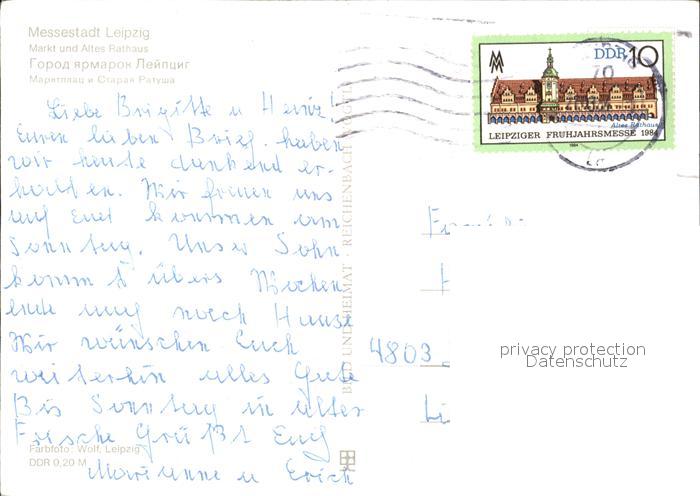 Messestadt Leipzig
Markt und Altes Rathaus
Город ярмарок Лейпциг
Марктплац и Старая Ратуша
DDR 10
Altes Rathaus
LEIPZIGER FRÜHJAHRSMESSE 1984
1984
Liebe Brigitte u Heinz!
Euren lieben Brief haben
wir heute dankend er-
halten. Wir freuen uns
auf Euer kommen am
Sonntag. Unser Sohn
kommt übers Wochen
ende auch nach Hause
Wir wünschen Euch
weiterhin alles Gute
Bis Sonntag in alter
Frische Grüßt Euch
Marianne u Erich
BILD UND HEIMAT · REICHENBACH
4803
privacy protection
Datenschutz
Farbfoto: Wolf, Leipzig
DDR 0,20 M